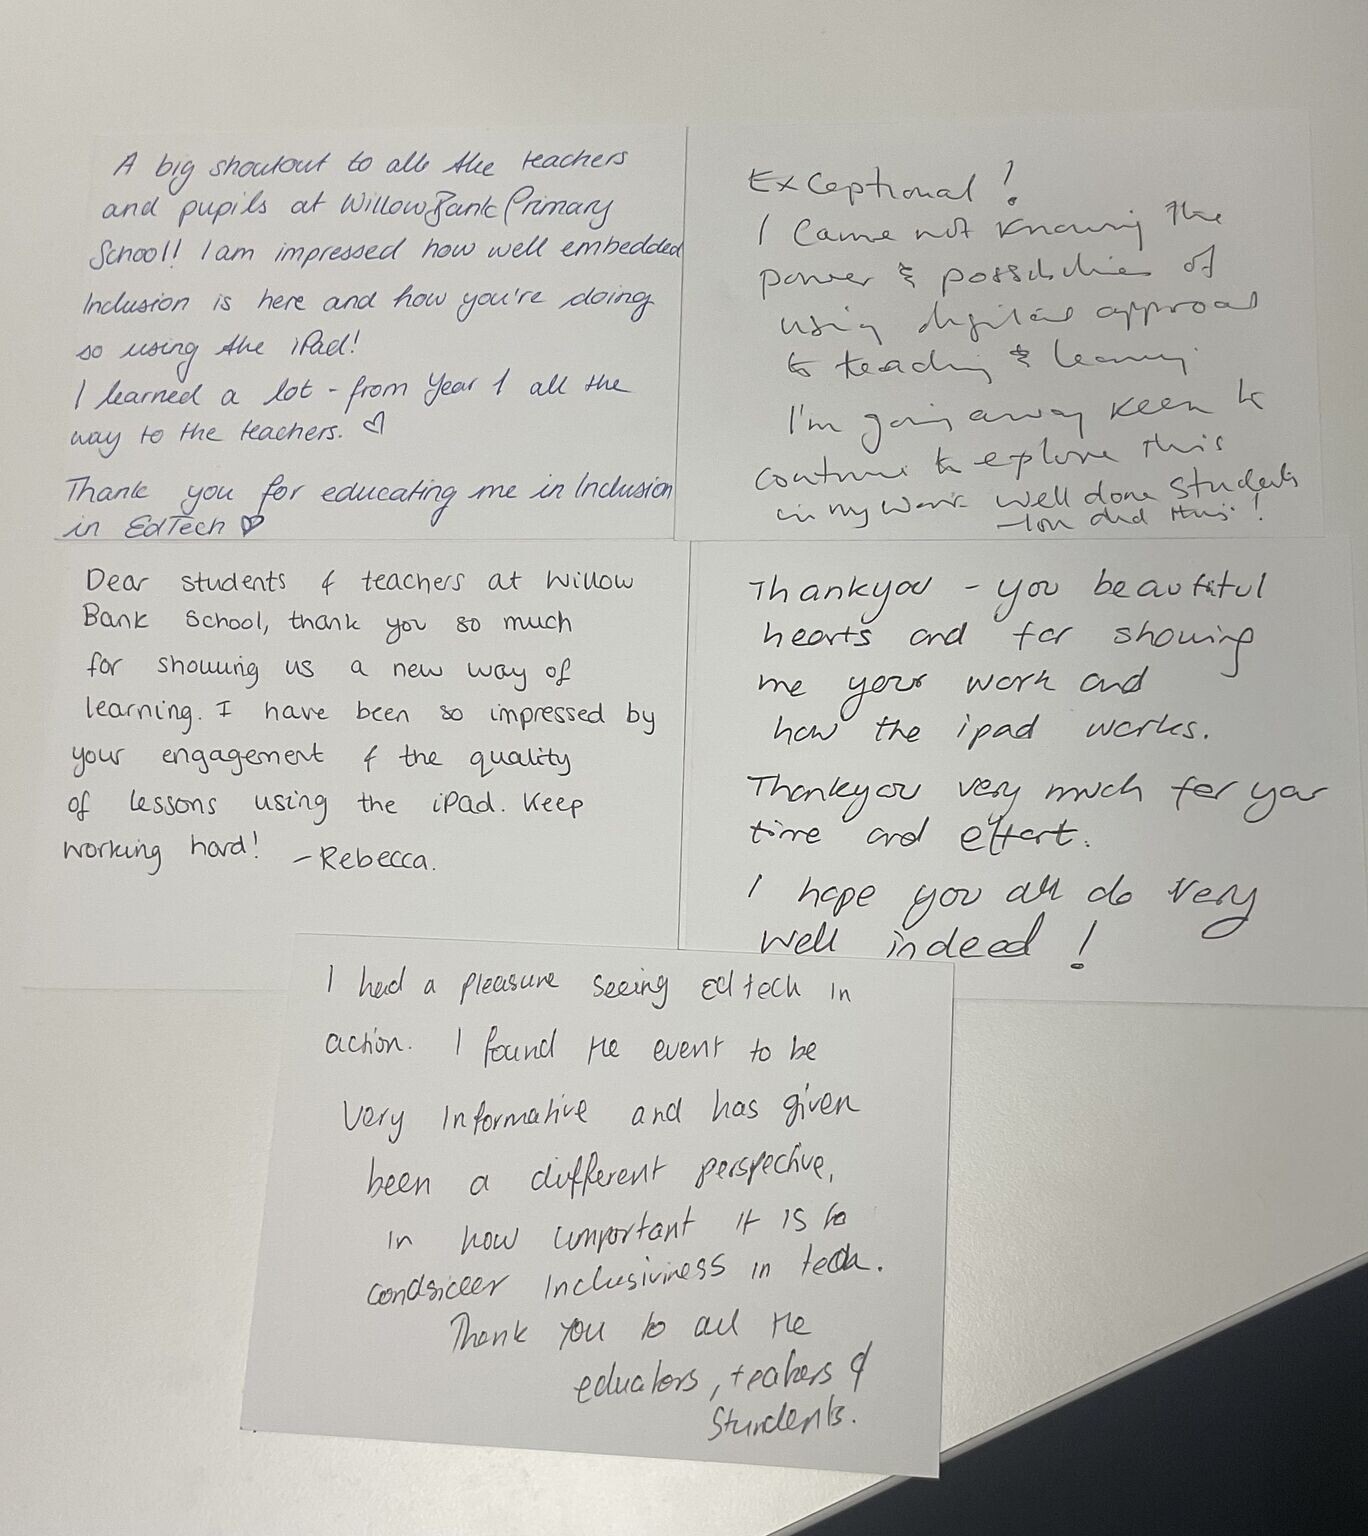 A big shoutout to all the teachers
and pupils at WillowBank Primary
School! I am impressed how well embedded
Inclusion is here and how you're doing
so using the iPad!
I learned a lot - from Year 1 all the
way to the teachers. ♡
Thank you for educating me in Inclusion
in EdTech ♡
Exceptional!
I came not knowing the
power & possibilities of
using digital approach
to teaching & learning
I'm going away keen to
continue to explore this
in my work. Well done students
- You did this!
Dear students & teachers at Willow
Bank School, thank you so much
for showing us a new way of
learning. I have been so impressed by
your engagement & the quality
of lessons using the iPad. Keep
working hard! - Rebecca.
Thankyou - you beautiful
hearts and for showing
me your work and
how the ipad works.
Thankyou very much for your
time and effort.
I hope you all do very
well indeed!
I had a pleasure seeing Edtech in
action. I found the event to be
very informative and has given
been a different perspective,
in how important it is to
condsider inclusiviness in tech.
Thank you to all the
educators, teachers &
Sturdents.